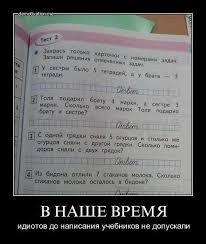 demotivation.me
Тест 2
Закрась только карточки с номерами задач.
Запиши решения отмеченных задач.
1 У сестры было 5 тетрадей, а у брата — 3
тетради.
Ответ
2 Толя подарил брату 4 марки, а сестре 3
марки. Сколько всего марок Толя подарил
брату и сестре?
Ответ
3 С одной грядки сняли 5 огурцов и столько же
огурцов сняли с другой грядки. Сколько поми-
доров сняли с двух грядок?
Ответ
4 Из бидона отлили 7 стаканов молока. Сколько
стаканов молока осталось в бидоне?
В НАШЕ ВРЕМЯ
идиотов до написания учебников не допускали